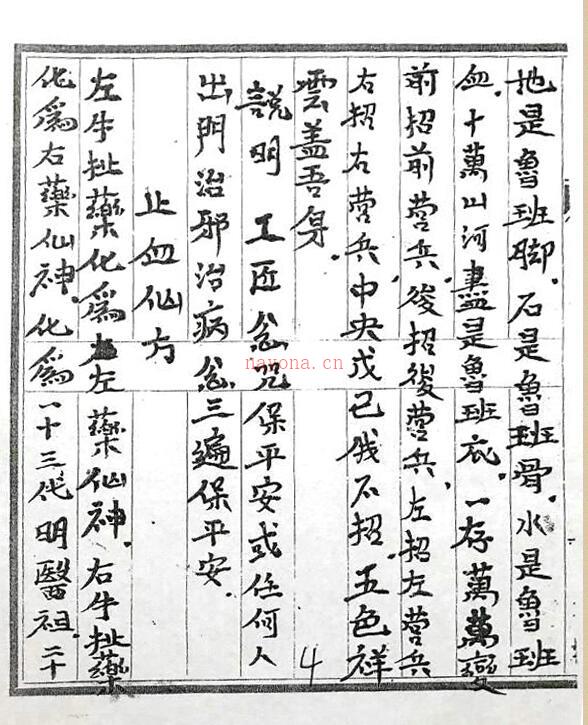 地是魯班脚.石是魯班骨.水是魯班
血.十萬山河盡是魯班衣.一存萬萬變
前招前营兵.後招後营兵.左招左营兵
右招右营兵中央戊己俄不招.五色祥
雲盖吾身.
說明 工匠念咒保平安或任何人
出門治邪治病念三遍保平安.
止血仙方
左牛扯藥化爲左藥仙神.右牛扯藥
化爲右藥仙神.化爲一十三代明醫祖.二十
4
nayona.cn